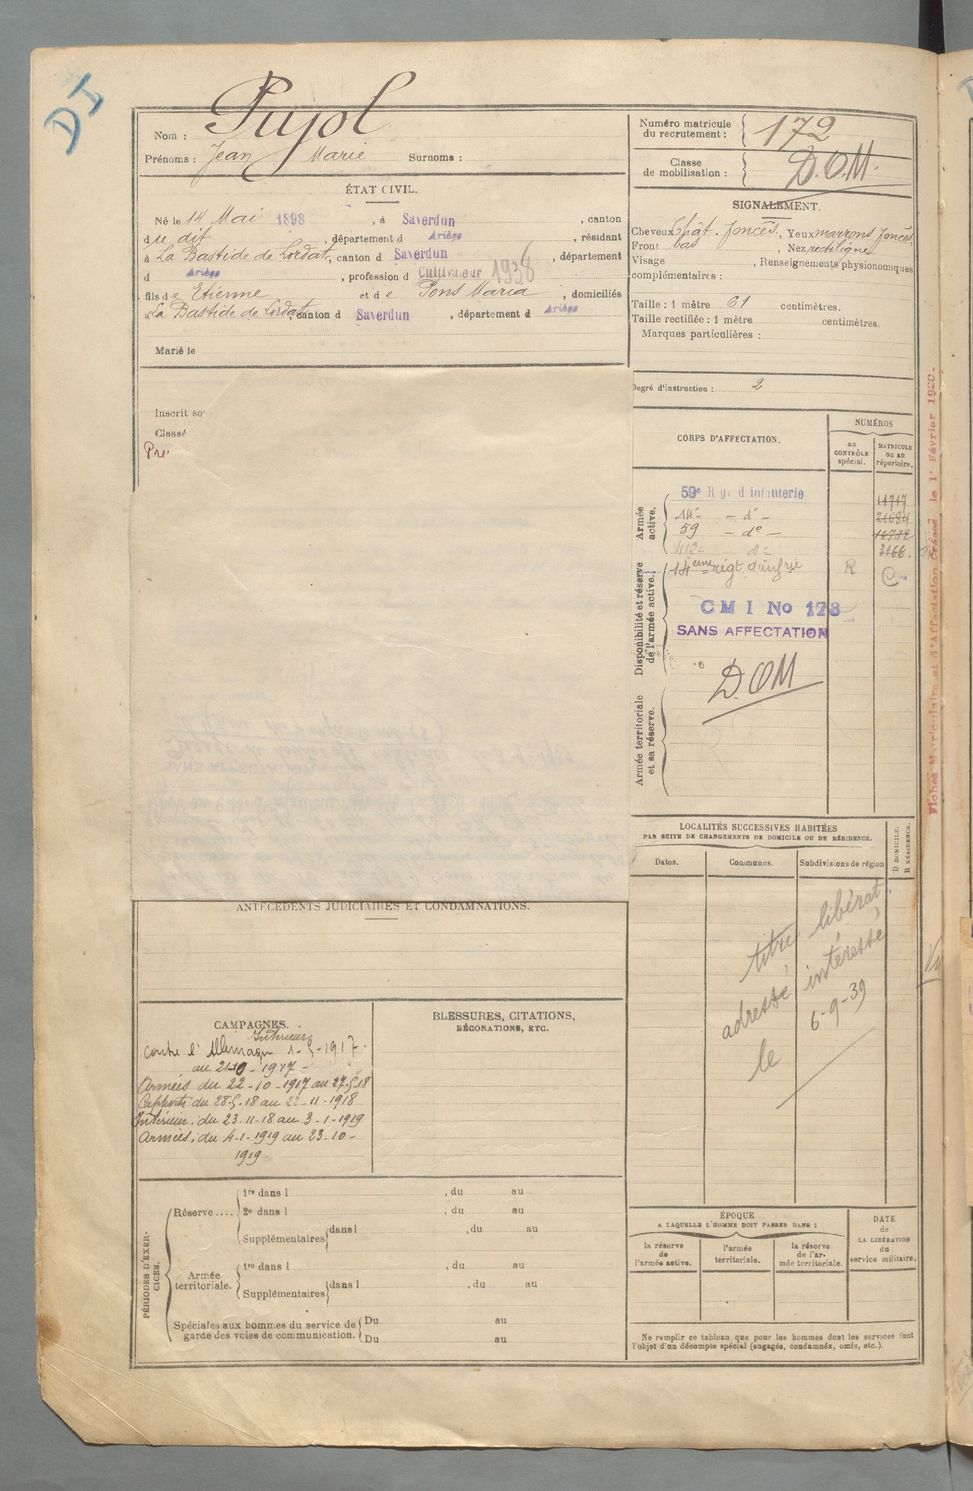 DI
Nom : Pujol
Prénoms : Jean Marie Surnoms :
Numéro matricule
du recrutement : 172
Classe
de mobilisation : D.O.M.
ÉTAT CIVIL.
Né le 14 Mai 1898, à Saverdun, canton
du dit, département d Ariège, résidant
à La Bastide de Lordat, canton d Saverdun, département
d Ariège, profession d Cultivateur 1938
fils de Etienne et de Pons Maria, domiciliés
à La Bastide de Lordat, canton d Saverdun, département d Ariège
Marié le
SIGNALEMENT.
Cheveux chât. foncés, Yeux marrons foncés
Front bas, Nez rectiligne
Visage , Renseignements physionomiques
complémentaires :
Taille : 1 mètre 61 centimètres.
Taille rectifiée : 1 mètre centimètres.
Marques particulières :
Degré d'instruction : 2
Inscrit so
Classé
Pre
CORPS D'AFFECTATION.
NUMÉROS
au
CONTRÔLE
spécial.
MATRICULE
ou au
répertoire.
Armée
active.
59e Rgt d'infanterie 11717
14e - d° -
59 - d° -
412 - d° - 3166
Disponibilité et réserve
de l'armée active.
14eme régt d'infrie R
C M I No 178
SANS AFFECTATION
D.OM
Armée territoriale
et sa réserve.
Fiches Matriculaire et d'Affectation créées le 1er Février 1920.
LOCALITÉS SUCCESSIVES HABITÉES
PAR SUITE DE CHANGEMENTS DE DOMICILE OU DE RÉSIDENCE.
Dates.
Communes.
Subdivisions de région
D DOMICILE.
R RÉSIDENCE.
titre libérat.
adressé intéressé
le 6-9-39
ANTÉCÉDENTS JUDICIAIRES ET CONDAMNATIONS.
CAMPAGNES.
Intérieur
contre l'Allemagne 1-5-1917
au 21-10-1917
Armées du 22-10-1917 au 27-5-18
Captivité du 28-5-18 au 22-11-1918
Intérieur : du 23-11-18 au 3-1-1919
Armées : du 4-1-1919 au 23-10-
1919
BLESSURES, CITATIONS,
DÉCORATIONS, ETC.
PÉRIODES D'EXER-
CICES.
Réserve ....
1re dans l , du au
2e dans l , du au
Supplémentaires dans l , du au
Armée
territoriale.
1re dans l , du au
Supplémentaires dans l , du au
Spéciales aux hommes du service de
garde des voies de communication.
Du au
Du au
ÉPOQUE
A LAQUELLE L'HOMME DOIT PASSER DANS :
la réserve
de
l'armée active.
l'armée
territoriale.
la réserve
de l'ar-
mée territoriale.
DATE
de
LA LIBÉRATION
du
service militaire.
Ne remplir ce tableau que pour les hommes dont les services font
l'objet d'un décompte spécial (engagés, condamnés, omis, etc.).